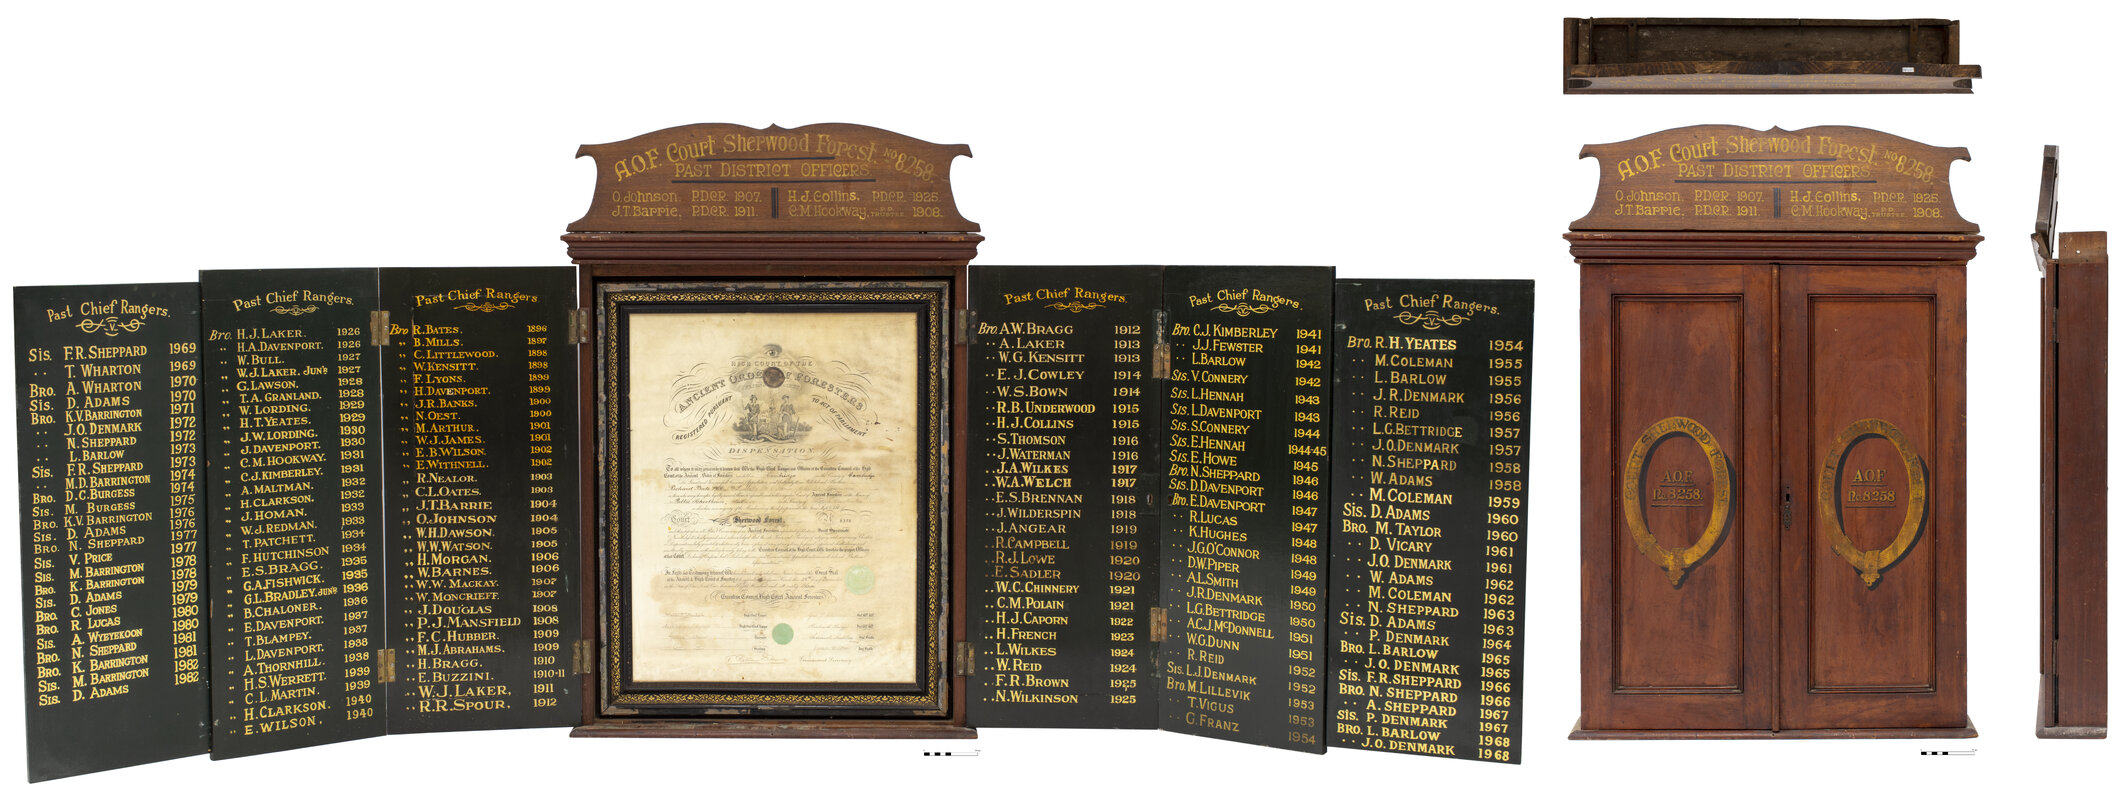 A.O.F. Court Sherwood Forest. No 8258.
PAST DISTRICT OFFICERS.
O. Johnson, P.D.C.R. 1907. H.J. Collins, P.D.C.R. 1925.
J.T. Barrie, P.D.C.R. 1911. C.M. Hookway, P.D. TRUSTEE. 1908.
Past Chief Rangers.
V.
Sis. F.R. SHEPPARD 1969
" T. WHARTON 1969
Bro. A. WHARTON 1970
Sis. D. ADAMS 1970
Bro. K.V. BARRINGTON 1971
" J.O. DENMARK 1972
" N. SHEPPARD 1972
" L. BARLOW 1973
Sis. F.R. SHEPPARD 1973
" M.D. BARRINGTON 1974
Bro. D.C. BURGESS 1974
Sis. M. BURGESS 1975
Bro. K.V. BARRINGTON 1976
Sis. D. ADAMS 1976
Bro. N. SHEPPARD 1977
Sis. V. PRICE 1977
Sis. M. BARRINGTON 1978
Bro. K. BARRINGTON 1978
Sis. D. ADAMS 1979
Bro. C. JONES 1979
Bro. R. LUCAS 1980
Sis. A. WYEYEKOON 1980
Bro. N. SHEPPARD 1981
Bro. K. BARRINGTON 1981
Sis. M. BARRINGTON 1982
Sis. D. ADAMS 1982
Past Chief Rangers.
Bro. H.J. LAKER. 1926
" H.A. DAVENPORT. 1926
" W. BULL. 1927
" W.J. LAKER. JUNR 1927
" G. LAWSON. 1928
" T.A. GRANLAND. 1928
" W. LORDING. 1929
" H.T. YEATES. 1929
" J.W. LORDING. 1930
" J. DAVENPORT. 1930
" C.M. HOOKWAY. 1931
" C.J. KIMBERLEY. 1931
" A. MALTMAN. 1932
" H. CLARKSON. 1932
" J. HOMAN. 1933
" W.J. REDMAN. 1933
" T. PATCHETT. 1934
" F. HUTCHINSON 1934
" E.S. BRAGG. 1935
" G.A. FISHWICK. 1935
" G.L. BRADLEY. JUNR 1936
" B. CHALONER. 1936
" E. DAVENPORT. 1937
" T. BLAMPEY. 1937
" L. DAVENPORT. 1938
" A. THORNHILL. 1938
" H.S. WERRETT. 1939
" C.L. MARTIN. 1939
" H. CLARKSON. 1940
" E. WILSON. 1940
Past Chief Rangers.
Bro R. BATES. 1896
" B. MILLS. 1897
" C. LITTLEWOOD. 1898
" W. KENSITT. 1898
" F. LYONS. 1899
" H. DAVENPORT. 1899
" J.R. BANKS. 1900
" N. OEST. 1900
" M. ARTHUR. 1901
" W.J. JAMES. 1901
" E.B. WILSON. 1902
" E. WITHNELL. 1902
" R. NEALOR. 1903
" C.L. OATES. 1903
" J.T. BARRIE 1904
" O. JOHNSON 1904
" W.H. DAWSON. 1905
" W.W. WATSON. 1905
" H. MORGAN. 1906
" W. BARNES. 1906
" W.W. MACKAY. 1907
" W. MONCRIEFF. 1907
" J. DOUGLAS 1908
" P.J. MANSFIELD 1908
" F.C. HUBBER. 1909
" M.J. ABRAHAMS. 1909
" H. BRAGG. 1910
" E. BUZZINI. 1910-11
" W.J. LAKER, 1911
" R.R. SPOUR, 1912
HIGH COURT OF THE
ANCIENT ORDER OF FORESTERS
REGISTERED PURSUANT TO ACT OF PARLIAMENT
DISPENSATION.
Court Sherwood Forest,
Past Chief Rangers.
Bro A.W. BRAGG 1912
" A. LAKER 1913
" W.G. KENSITT 1913
" E.J. COWLEY 1914
" W.S. BOWN 1914
" R.B. UNDERWOOD 1915
" H.J. COLLINS 1915
" S. THOMSON 1916
" J. WATERMAN 1916
" J.A. WILKES 1917
" W.A. WELCH 1917
" E.S. BRENNAN 1918
" J. WILDERSPIN 1918
" J. ANGEAR 1919
" R. CAMPBELL 1919
" R.J. LOWE 1920
" E. SADLER 1920
" W.C. CHINNERY 1921
" C.M. POLAIN 1921
" H.J. CAPORN 1922
" H. FRENCH 1923
" L. WILKES 1924
" W. REID 1924
" F.R. BROWN 1925
" N. WILKINSON 1925
Past Chief Rangers.
Bro. C.J. KIMBERLEY 1941
" J.J. FEWSTER 1941
" L. BARLOW 1942
Sis. V. CONNERY 1942
Sis. L. HENNAH 1943
Sis. L. DAVENPORT 1943
Sis. S. CONNERY 1944
Sis. E. HENNAH 1944-45
Sis. E. HOWE 1945
Bro. N. SHEPPARD 1946
Sis. D. DAVENPORT 1946
Bro. E. DAVENPORT 1947
" R. LUCAS 1947
" K. HUGHES 1948
" J.G. O'CONNOR 1948
" D.W. PIPER 1949
" A.L. SMITH 1949
" J.R. DENMARK 1950
" L.G. BETTRIDGE 1950
" A.C.J. McDONNELL 1951
" W.G. DUNN 1951
" R. REID 1952
Sis. L.J. DENMARK 1952
Bro. M. LILLEVIK 1953
" T. VIGUS 1953
" G. FRANZ 1954
Past Chief Rangers.
V.
Bro. R.H. YEATES 1954
" M. COLEMAN 1955
" L. BARLOW 1955
" J.R. DENMARK 1956
" R. REID 1956
" L.G. BETTRIDGE 1957
" J.O. DENMARK 1957
" N. SHEPPARD 1958
" W. ADAMS 1958
" M. COLEMAN 1959
Sis. D. ADAMS 1960
Bro. M. TAYLOR 1960
" D. VICARY 1961
" J.O. DENMARK 1961
" W. ADAMS 1962
" M. COLEMAN 1962
" N. SHEPPARD 1963
Sis. D. ADAMS 1963
" P. DENMARK 1964
Bro. L. BARLOW 1965
" J.O. DENMARK 1965
Sis. F.R. SHEPPARD 1966
Bro. N. SHEPPARD 1966
" A. SHEPPARD 1967
Sis. P. DENMARK 1967
Bro. L. BARLOW 1968
" J.O. DENMARK 1968
A.O.F. Court Sherwood Forest. No 8258.
PAST DISTRICT OFFICERS.
O. Johnson, P.D.C.R. 1907. H.J. Collins, P.D.C.R. 1925.
J.T. Barrie, P.D.C.R. 1911. C.M. Hookway, P.D. TRUSTEE. 1908.
A.O.F.
No. 8258.
A.O.F
No. 8258